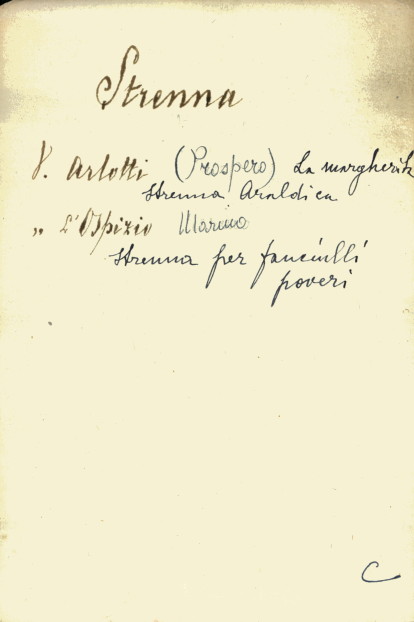 Strenna
V. Arlotti (Prospero) La margherita
Strenna Araldica
„ L'Ospizio Marino
Strenna per fanciulli
poveri
C